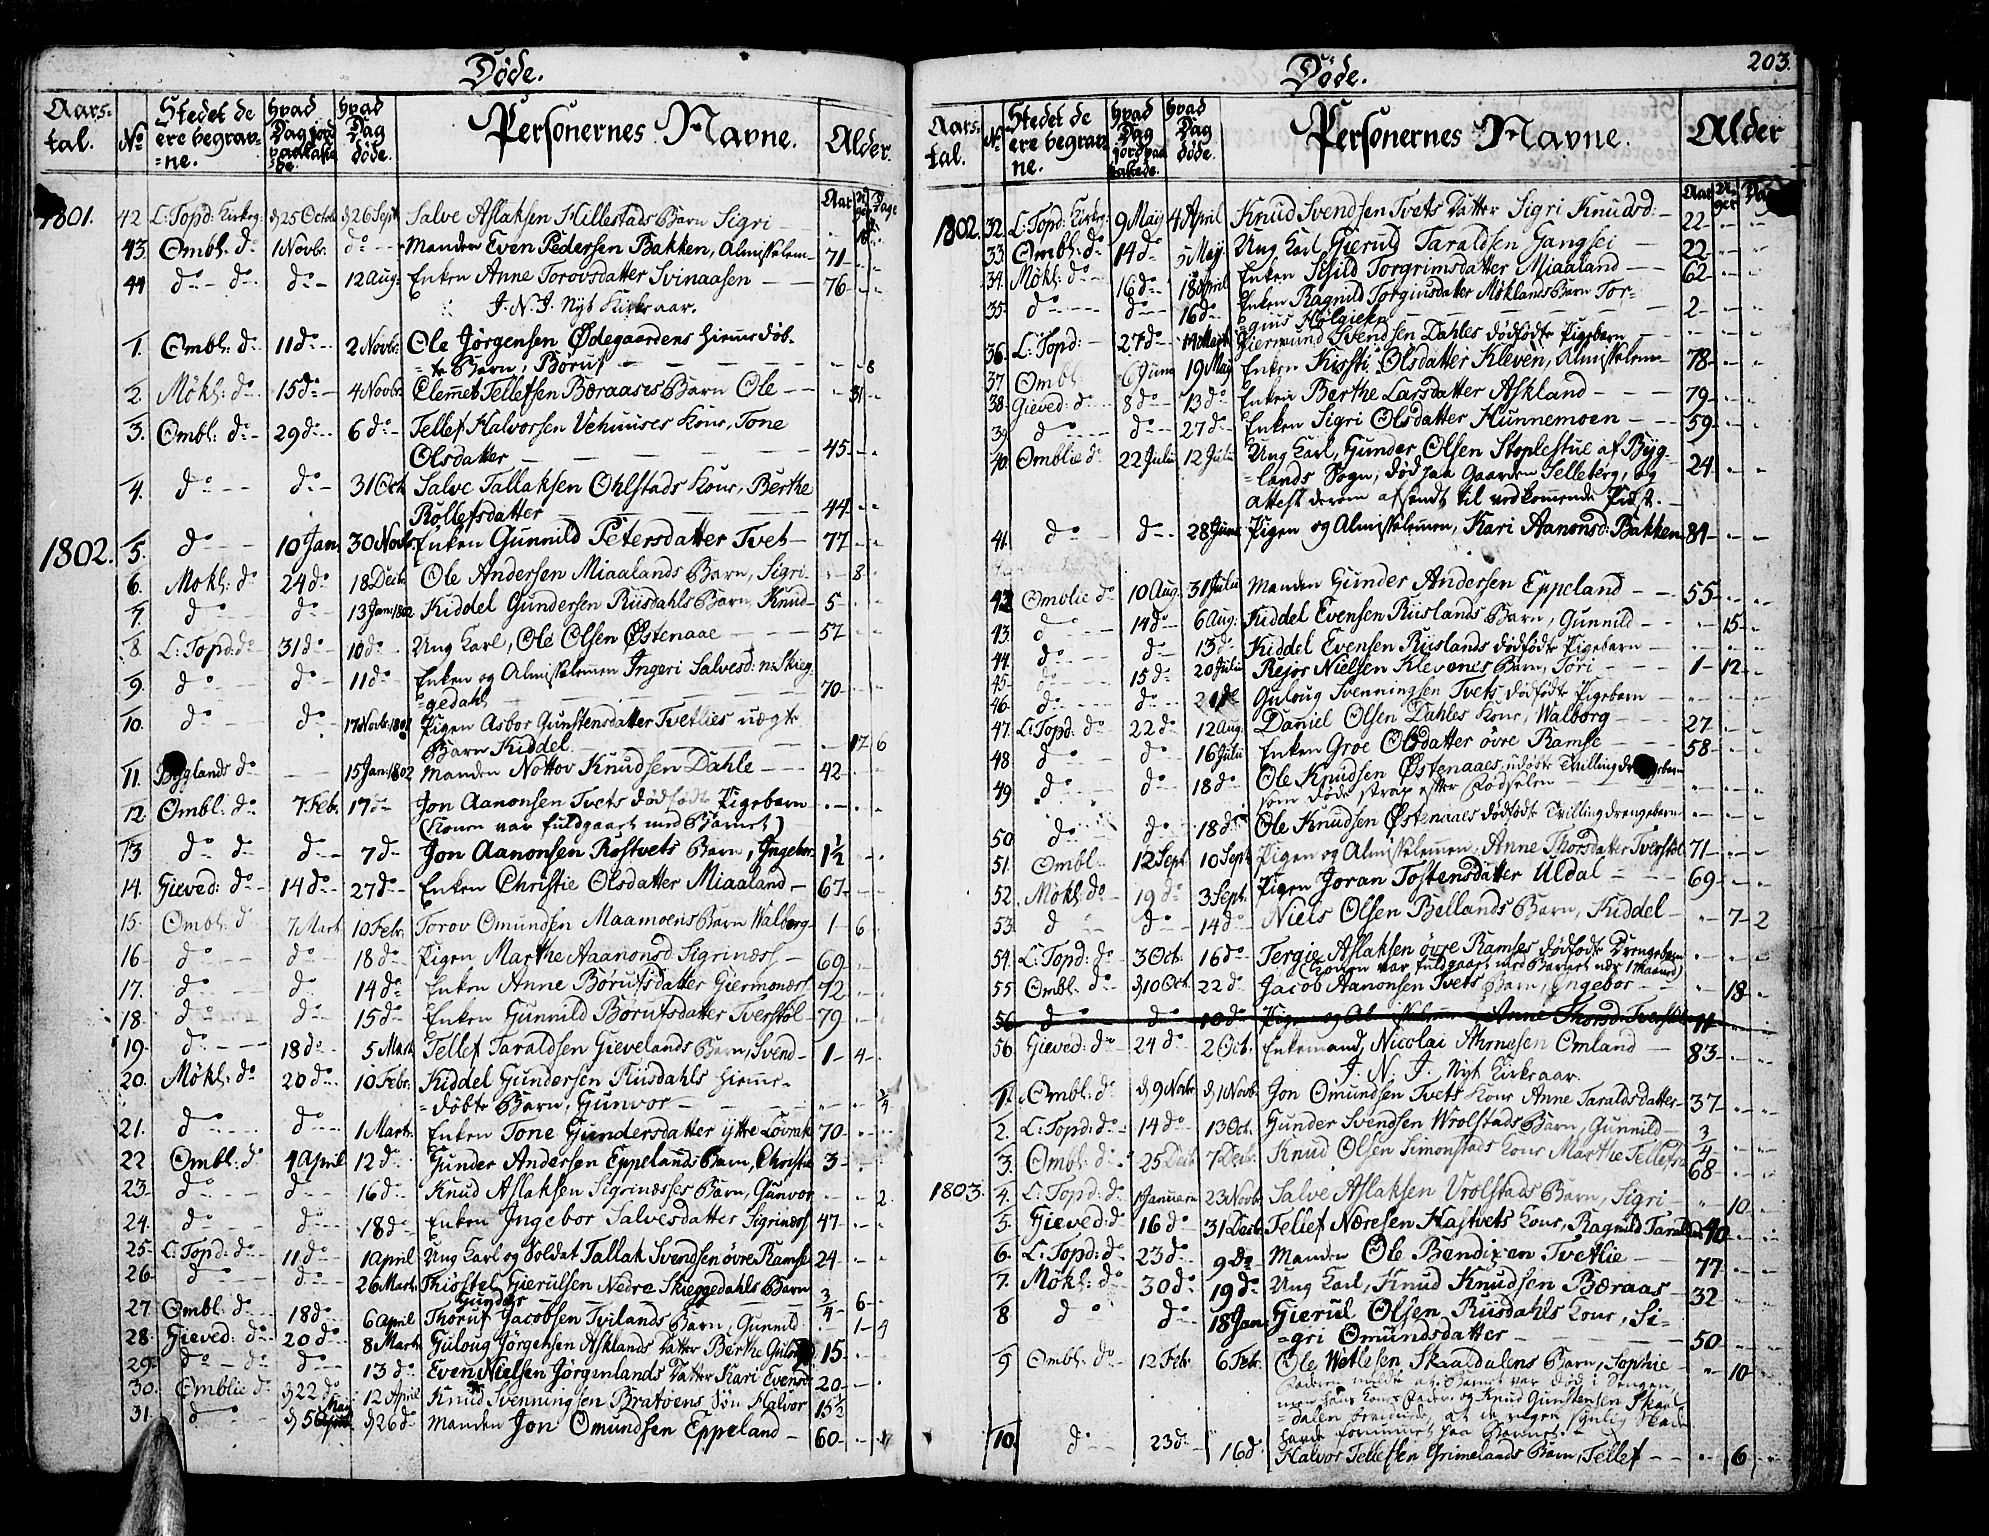 Døde.
Aars-
tal.
No
Stedet de
ere begrav-
=ne.
hvad
Dag jord
paakaste
de.
hvad
Dag
døde.
Personernes Navne.
Alder.
Aar Uger Dage
1801. 42 L: Topd: Kirkeg: d 25 Octob d 26 Sept. Salve Aslaksen Hillestads Barn Sigri -
43. Ombl: do 1 Novbr. do Manden Even Pedersen Bakken, Almisselem - 71 - -
44 do - do do - 12 Aug: Enken Anne Torovsdatter Svinaasen - 76 - -
J. N. J. Nyt Kirkeaar.
1. Ombl: do 11 do - 2 Novbr. Ole Jørgensen Ødegaardens hiemmedøb-
=te Barn, Børuf - - - 8
2. Møkl: do 15 do - 4 Novbr. Clemmet Tellefsen Bæraases Barn Ole - - 31 -
3. Ombl: do - 29 do - 6 do - Tellef Halvorsen Vehuuses Kone, Tone
Olsdatter - 45 - -
4. do - do - 31 Oct. Salve Tallaksen Ohlstads Kone, Berthe
Rollefsdatter - 44 - -
1802. 5. do - 10 Jan. 30 Novbr. Enken Gunnild Petersdatter Tvet - 77 - -
6. Møkl: do 24 do - 18 Decbr. Ole Andersen Miaalands Barn, Sigri - - 8 -
7. do - do - 13 Jan: 1802 Kiddel Gundersen Riisdahls Barn, Knud - 5 - -
8. L: Topd: do 31 do - 10 do - Ung Karl, Ole Olsen Østenaae - 57 - -
9. do - do - 11 do - Enken og Almisselemmen Ingeri Salvesd: n: Skieg-
=gedahl - 70 - -
10. do - do - 17 Novbr. 1801 Pigen Asbor Gunstensdatter Tvetlies uægte
Barn Kiddel - - 17 6
11. Byglands do - 15 Jan: 1802 Manden Nottov Knudsen Dahle - 42 - -
12. Ombl: do 7 Febr. 17 do - Jon Aanonsen Tvets dødfødte Pigebarn - - -
(Konen var fuldgaaet med Barnet)
13 do do do - 7 do - Jon Aanonsen Rostvets Barn, Ingebor 1½ - -
14. Gieved: do - 14 do - 27 do - Enken Christie Olsdatter Miaaland - 67 - -
15. Ombl: do 7 Mart. 10 Febr. Torov Omundsen Maamoens Barn Walborg - 1 - 6 -
16. do - do - 18 do - Pigen Marthe Aaanonsd Sigrinæss - 69 - -
17. do - do 14 do - Enken Anne Børufsdatter Giermonæss 72 - -
18. do - do 15 do - Enken Gunnild Børufsdatter Tverstøl - 79 - -
19. do - 18 do - 5 Mart. Tellef Taraldsen Gievelands Barn, Svend - 1 - 4 -
20. Møkl: do 20 do - 10 Febr. Kiddel Gundersen Riisdahls hieme-
=døbte Barn, Gunvor - - - ¼
21. do - do - 1 Mart. Enken Tone Gundersdatter yttre Løvrak 70 - -
22 Ombl: do 4 April 12 do - Gunder Andersen Eppelands Barn, Christie 3 - -
23. do - do - 16 do - Knud Aslaksen Sigrinæsses Barn, Gunvor - - 2
24. do - do - 18 do - Enken Ingebor Salvesdatter Sigrinæss 47 - -
25. L: Topd: do - 11 do - 1 April Ung Karl og Soldat Tallak Svendsen øvre Ramse 24 - -
26 do - do - 26 Mart. Thiostel Gierulsen Nedre Skieggedahls Barn
Gunder - ¾ 6 -
27 Ombl: do 18 do - 6 April Thoruf Jacobsen Tvilands Barn, Gunnild - 1 - 4
28. Gieved: do - 20 do - 8 Mart. Guloug Jørgensen Asklands Datter Berthe 15 - -
29. do - do do - 13 do - Even Nielsen Jørgenlands Datter Kari Evensd. 20 - -
30. Omblie do d 22 do 12 April Knud Svenningsen Bratvens Søn Halvor 15½
31. do - d 5 May d 26 do - Manden Jon Omundsen Eppeland - 60 - -
203.
Døde.
Aars-
tal.
No
Stedet de
ere begrav-
ne.
hvad
Dag
jord paa
kastede.
hvad
Dag
døde.
Personernes Navne.
Alder
Aar Uger
1802. 32 L: Topd: Kirkeg: 9 May 4 April Knud Svendsen Tvets Datter Sigri Knudsd: - 22 - -
33. Ombl: do 14 do 5 May Ung Karl Gierulf Taraldsen Gangsei - 22 - -
34. Møkl: do - 16 do - 18 April Enken Schild Torgrimsdatter Miaaland - 62 - -
35 do - do - 16 do - Enken Ragnild Torgiusdatter Møklands Barn Tor-
=gius Helgiesen - 2 - -
36. L: Topd: - 27 do - 14 Mart. Giermund Svendsen Dahles dødfødte Pigebarn - - -
37 Ombl. 6 Juni 19 May Enken Kirsti Olsdatter Kleven, Almisselem - 78 - -
38. Gieved: do 8 do - 13 do - Enken Berthe Larsdatter Askland - 79 - -
39 do - do - 27 do - Enken Sigri Olsdatter Hunnemoen - 59 - -
40. Omblie do 22 Julii 12 Julii Ung Karl, Gunder Olsen Stoplestue af Byg-
=lands Sogn, død paa Gaarden Selleberg, og 24 - -
Attest derom afsendt til vedkommende Præst. -
41. do do - 28 Juni Pigen og Almisselemmen, Kari Aanonsd: Bakken 81 - -
42 Omblie do 10 Aug. 31 Julii Manden Gunder Andersen Eppeland - 55 - -
43. do - 14 do - 6 Aug: Kiddel Evensen Riislands Barn, Gunnild - - 15 -
44 do - do - 13 do - Kiddel Evensen Riislands dødfødte Pigebarn - - -
45 do - 15 do - 20 Julii Rejor Nielsen Klevenes Barn, Tori - 1 - 12 -
46 do - do - 21 do Guloug Svenningsen Tvets dødfødte Pigebarn - - -
47. L: Topd: do 22 do - 12 Aug. Daniel Olsen Dahles Kone, Walborg - 27 - -
48 do do - 16 Julii Enken Groe Olsdatter øvre Ramse - 58 - -
49 do - do - 18 do - Ole Knudsen Østenaaes, udøbte Tvillingdrengebarn - - -
som døde strax efter Fødselen
50. do do - 18 do - Ole Knudsen Østenaaes dødfødte Tvillingdrengebarn - - -
51. Ombl. 12 Sept. 10 Sept. Pigen og Almisselemmen, Anne Thorsdatter Tverstøl 71 - -
52. Møkl: do - 19 do - 3 Sept. Pigen Joran Tostensdatter Uldal - 69 - -
53. do do - 14 do - Niels Olsen Bellands Barn, Kiddel - - 7 - 2
54. L: Topd: do - 3 Oct. 16 do - Tergie Aslaksen øvre Ramses dødfødte Drengebarn - - -
(Konen var fuldgaaet med Barnet nær 1 Maaned)
55 Ombl: do - d 10 Oct. 22 do - Jacob Aanonsen Tvets Barn, Ingebor - - 18 -
56 do - do - 10 do - Pigen og Almisselemmen Anne Thorsd: Tverstøl 71 - -
56. Gieved: do - 24 do - 2 Oct. Enkemand, Nicolai Ahnesen Omland - 83 - -
J. N. J. Nyt Kirkeaar.
1. Ombl: do d 9 Novbr. d 1 Novbr. Jon Omundsen Tvets Kone Anne Taraldsdatter - 37 - -
2. L: Topd: do - 14 do - 13 Oct. Gunder Svendsen Wrolstads Barn, Gunnild - ¾ - -
3. Ombl: do 25 Decbr. 7 Decbr. Knud Olsen Simonstads Kone Marthe Tellefsd. 68 - -
1803. 4. L: Topd: do 1 Januarii 23 Novbr. Salve Aslaksen Vrolstads Barn, Sigri - - 10 -
5. Gieved: do 16 do - 31 Decbr. Tellef Næresen Hastvets Kone, Ragnild Taraldsd: 40 - -
6. L: Topd: do 23 do - 9 do - Manden Ole Bendixen Tvetlie - 77 - -
7. Møkl: do - 30 do - 19 do - Ung Karl, Knud Knudsen Bæraas - 32 - -
8 do do - 18 Jan: Gierul Olsen Riisdahls Kone, Si-
=gri Omundsdatter - 50 - -
9 Ombl: do 12 Febr. 6 Febr. Ole Wetlesen Skaaldalens Barn, Sophie - - 10 -
Faderen meldte at Barnet var død i Sengen,
men hans Kones Fader og Knud Gunstensen Skaal-
=dalen at de ingen synlig Skade
havde fornummet paa Barnet. -
10. do - 23 do - 16 do Halvor Tellefsen Grimelands Barn, Tellef - - 6 -